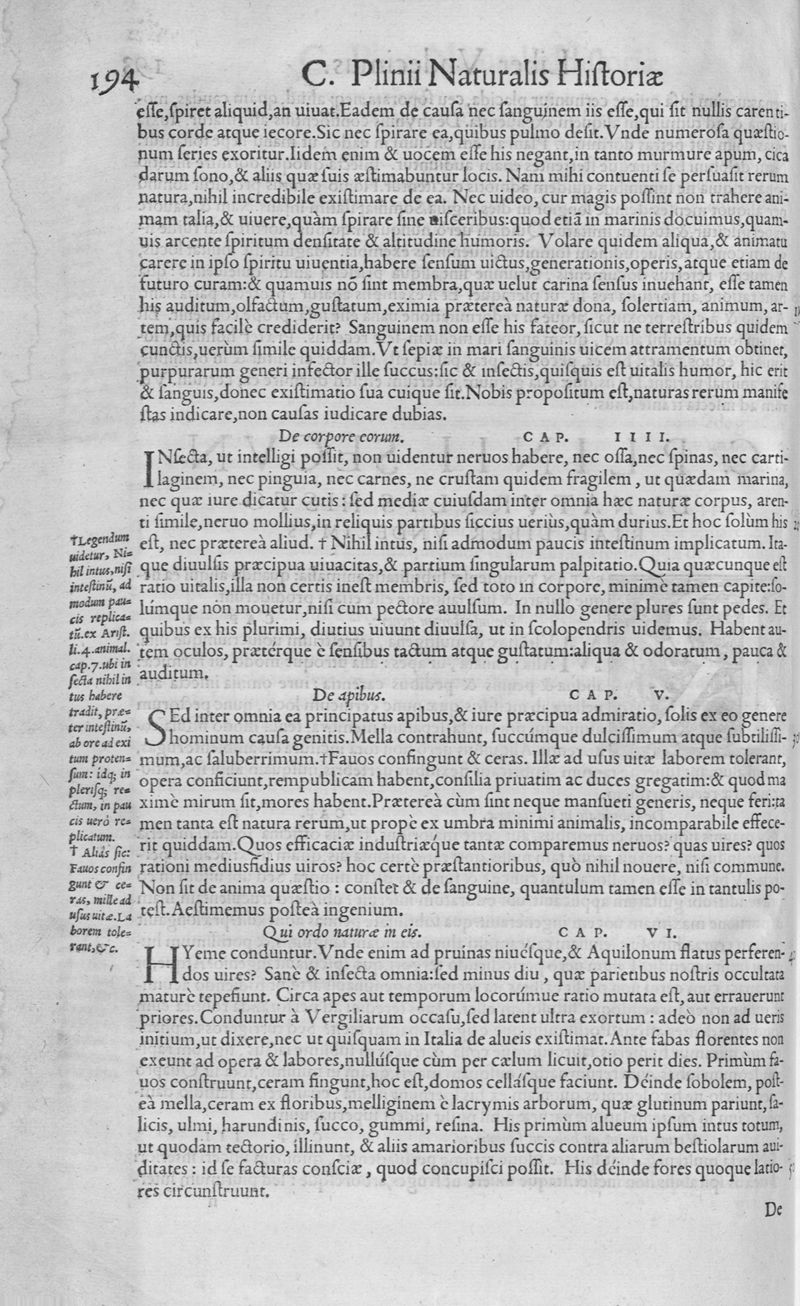 194 C. Plinii Naturalis Hiſtoriæ
eſſe,ſpiret aliquid,an uiuat.Eadem de cauſa nec ſanguinem iis eſſe,qui ſit nullis carenti-
bus corde atque iecore.Sic nec ſpirare ea,quibus pulmo deſit.Vnde numeroſa quæſtio-
num ſeries exoritur.Iidem enim & uocem eſſe his negant,in tanto murmure apum, cica
darum ſono,& aliis quæ ſuis æſtimabuntur locis. Nam mihi contuenti ſe perſuaſit rerum
natura,nihil incredibile exiſtimare de ea. Nec uideo, cur magis poſſint non trahere ani-
mam talia,& uiuere,quàm ſpirare ſine uiſceribus:quod etiã in marinis docuimus,quam-
uis arcente ſpiritum denſitate & altitudine humoris. Volare quidem aliqua,& animatu
carere in ipſo ſpiritu uiuentia,habere ſenſum uictus,generationis,operis,atque etiam de
futuro curam:& quamuis nõ ſint membra,quæ uelut carina ſenſus inuehant, eſſe tamen
his auditum,olfactum,guſtatum,eximia prætereà naturæ dona, ſolertiam, animum, ar-
tem,quis facilè crediderit? Sanguinem non eſſe his fateor,ſicut ne terreſtribus quidem
cunctis,uerùm ſimile quiddam.Vt ſepiæ in mari ſanguinis uicem attramentum obtinet,
purpurarum generi infector ille ſuccus:ſic & inſectis,quiſquis eſt uitalis humor, hic erit
& ſanguis,donec exiſtimatio ſua cuique ſit.Nobis propoſitum eſt,naturas rerum manife
ſtas indicare,non cauſas iudicare dubias.
De corpore eorum. CAP. IIII.
INſecta, ut intelligi poſſit, non uidentur neruos habere, nec oſſa,nec ſpinas, nec carti-
laginem, nec pinguia, nec carnes, ne cruſtam quidem fragilem , ut quædam marina,
nec quæ iure dicatur cutis : ſed mediæ cuiuſdam inter omnia hæc naturæ corpus, aren-
ti ſimile,neruo mollius,in reliquis partibus ſiccius ueriùs,quàm durius.Et hoc ſolùm his
eſt, nec prætereà aliud. † Nihil intùs, niſi admodum paucis inteſtinum implicatum. Ita-
que diuulſis præcipua uiuacitas,& partium ſingularum palpitatio.Quia quæcunque eſt
ratio uitalis,illa non certis ineſt membris, ſed toto in corpore, minimè tamen capite:ſo-
lúmque non mouetur,niſi cum pectore auulſum. In nullo genere plures ſunt pedes. Et
quibus ex his plurimi, diutius uiuunt diuulſa, ut in ſcolopendris uidemus. Habent au-
tem oculos, prætérque è ſenſibus tactum atque guſtatum:aliqua & odoratum , pauca &
auditum.
†Legendum
uidetur, Ni=
hil intus,niſi
inteſtinũ, ad
modum pau=
cis replica=
tũ.ex Ariſt.
li.4.animal.
cap.7.ubi in
ſecta nihil in
tus habere
tradit, præ=
ter inteſtinũ,
ab ore ad exi
tum proten=
ſum: idq; in
pleriſq; re=
ctum, in pau
cis uerò re=
plicatum.
† Aliàs ſic:
Fauos confin
gunt & ce=
ras, mille ad
uſus uitæ.La
borem tole=
rant,&c.
De apibus. CAP. V.
SEd inter omnia ea principatus apibus,& iure præcipua admiratio, ſolis ex eo genere
hominum cauſa genitis.Mella contrahunt, ſuccúmque dulciſſimum atque ſubtiliſſi-
mum,ac ſaluberrimum.†Fauos confingunt & ceras. Illæ ad uſus uitæ laborem tolerant,
opera conficiunt,rempublicam habent,conſilia priuatim ac duces gregatim:& quod ma
ximè mirum ſit,mores habent.Prætereà cùm ſint neque manſueti generis, neque feri:ta
men tanta eſt natura rerùm,ut propè ex umbra minimi animalis, incomparabile effece-
rit quiddam.Quos efficaciæ induſtriæque tantæ comparemus neruos? quas uires? quos
rationi mediusfidius uiros? hoc certè præſtantioribus, quò nihil nouere, niſi commune.
Non ſit de anima quæſtio : conſtet & de ſanguine, quantulum tamen eſſe in tantulis po-
teſt.Aeſtimemus poſteà ingenium.
Qui ordo naturæ in eis. CAP. VI.
HYeme conduntur.Vnde enim ad pruinas niuéſque,& Aquilonum flatus perferen-
dos uires? Sanè & inſecta omnia:ſed minus diu , quæ parietibus noſtris occultata
maturè tepefiunt. Circa apes aut temporum locorúmue ratio mutata eſt, aut errauerunt
priores.Conduntur à Vergiliarum occaſu,ſed latent ultra exortum : adeò non ad ueris
initium,ut dixere,nec ut quiſquam in Italia de alueis exiſtimat.Ante fabas florentes non
exeunt ad opera & labores,nulluſque cùm per cælum licuit,otio perit dies. Primùm fa-
uos conſtruunt,ceram fingunt,hoc eſt,domos cellaſque faciunt. Déinde ſobolem, poſt-
eà mella,ceram ex floribus,melliginem è lacrymis arborum, quæ glutinum pariunt,ſa-
licis, ulmi, harundinis, ſucco, gummi, reſina. His primùm alueum ipſum intus totum,
ut quodam tectorio, illinunt, & aliis amarioribus ſuccis contra aliarum beſtiolarum aui-
ditates : id ſe facturas conſciæ , quod concupiſci poſſit. His déinde fores quoque latio-
res circunſtruunt.
De